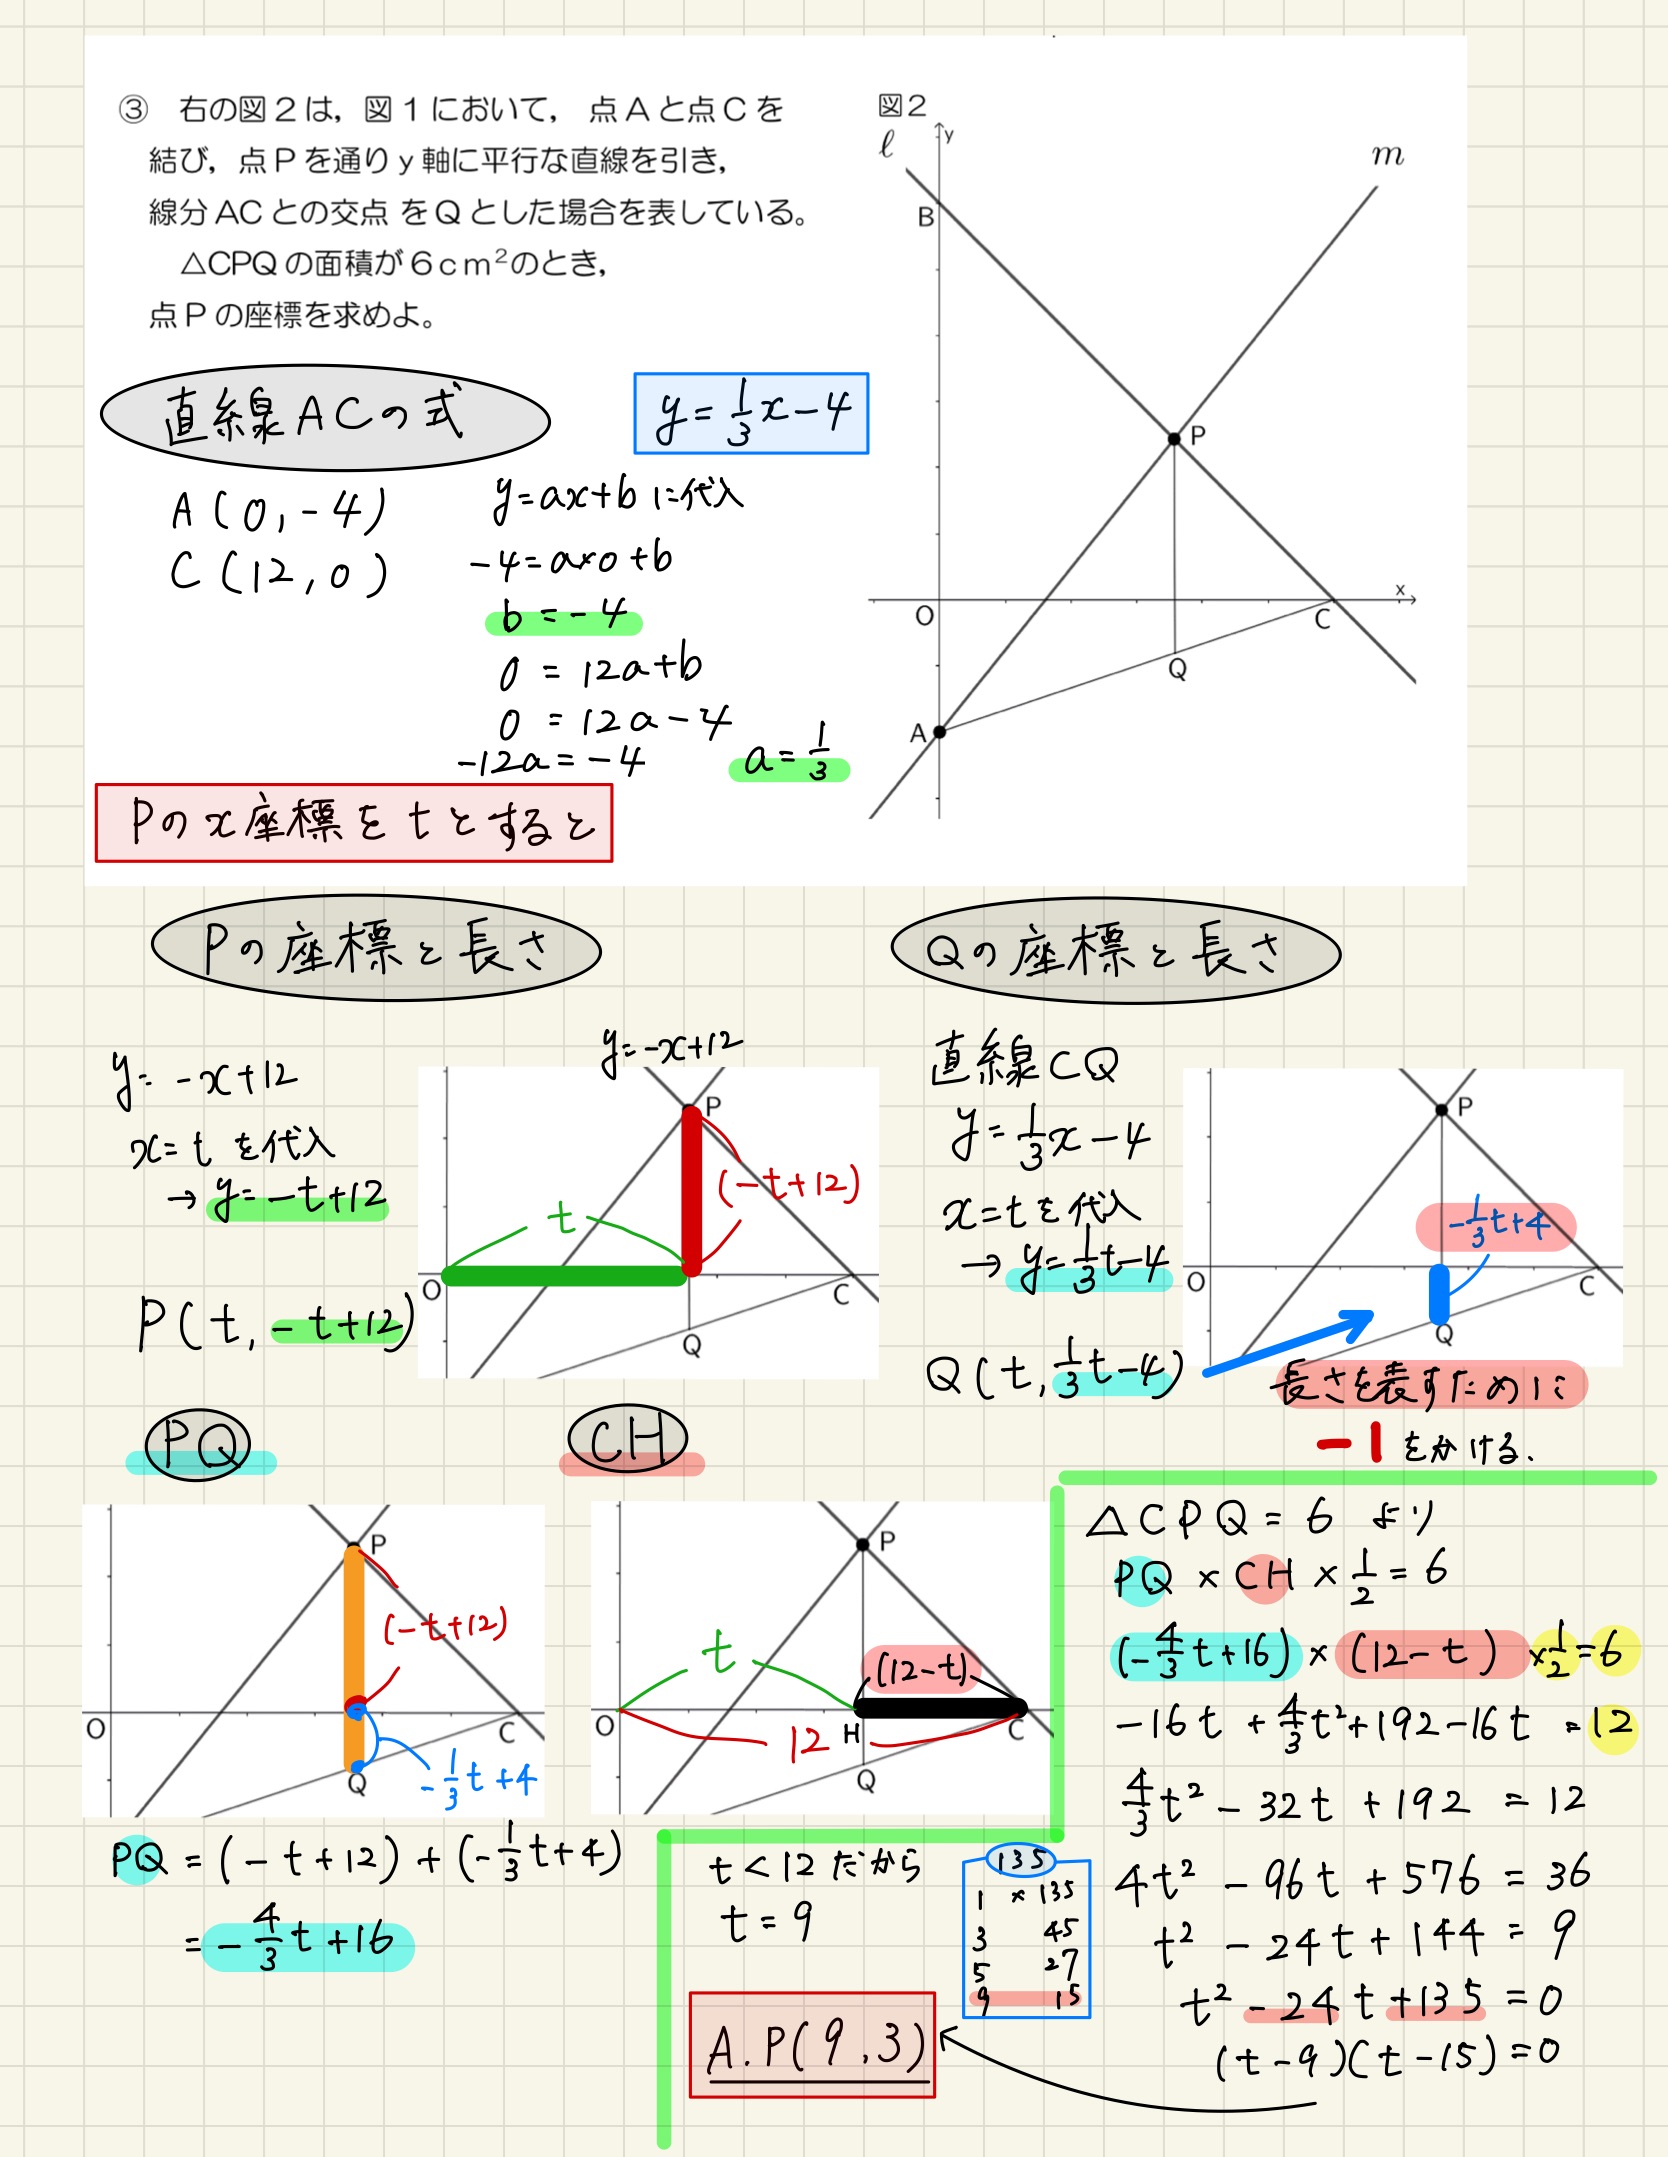 ③ 右の図２は，図１において， 点Ａと点Ｃを
結び，点Ｐを通りｙ軸に平行な直線を引き，
線分ACとの交点 をＱとした場合を表している。
△CPQの面積が６cm²のとき，
点Ｐの座標を求めよ。
図２
ℓ
y
m
B
P
x
O
C
Q
A
直線ACの式
y=1/3x-4
A(0,-4)
C(12,0)
y=ax+bに代入
-4=a×0+b
b=-4
0=12a+b
0=12a-4
-12a=-4
a=1/3
Pのx座標をtとすると
Pの座標と長さ
y=-x+12
x=tを代入
→y=-t+12
P(t,-t+12)
y=-x+12
P
(-t+12)
t
O
C
Q
Qの座標と長さ
直線CQ
y=1/3x-4
x=tを代入
→y=1/3t-4
Q(t,1/3t-4)
P
-1/3t+4
O
C
Q
長さを表すために
-1をかける.
PQ
P
(-t+12)
O
C
Q
-1/3t+4
PQ=(-t+12)+(-1/3t+4)
=-4/3t+16
CH
P
t
(12-t)
O
12
H
C
Q
△CPQ=6 より
PQ×CH×1/2=6
(-4/3t+16)×(12-t)×1/2=6
-16t+4/3t²+192-16t=12
4/3t²-32t+192=12
4t²-96t+576=36
t²-24t+144=9
t²-24t+135=0
(t-9)(t-15)=0
t<12だから
t=9
135
1×135
3 45
5 27
9 15
A.P(9,3)